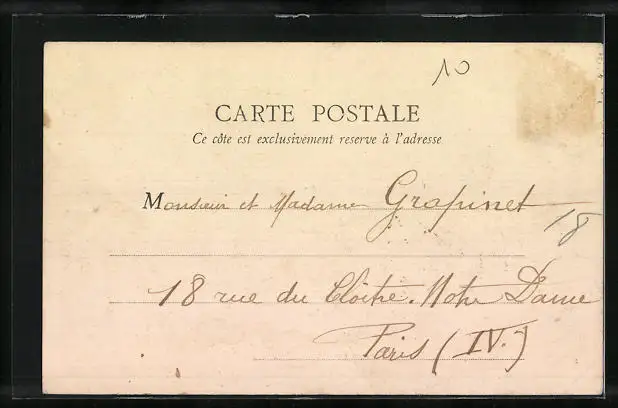 10
CARTE POSTALE
Ce côte est exclusivement reserve à l'adresse
Monsieur et Madame Grapinet
18
18 rue du Cloître. Notre Dame
Paris (IV.)